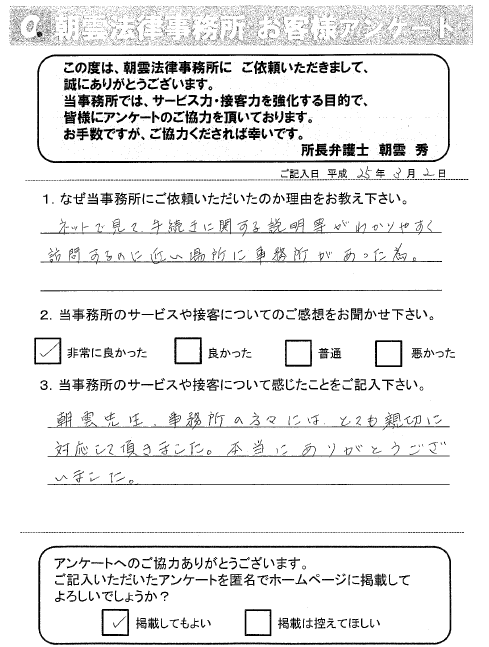 Q. 朝雲法律事務所 お客様アンケート
この度は、朝雲法律事務所に ご依頼いただきまして、
誠にありがとうございます。
当事務所では、サービス力・接客力を強化する目的で、
皆様にアンケートのご協力を頂いております。
お手数ですが、ご協力くだされば幸いです。
所長弁護士 朝雲 秀
ご記入日 平成 25 年 3 月 2 日
1. なぜ当事務所にご依頼いただいたのか理由をお教え下さい。
ネットで見て、手続きに関する説明等がわかりやすく
訪問するのに近い場所に事務所があった為。
2. 当事務所のサービスや接客についてのご感想をお聞かせ下さい。
✓ 非常に良かった 良かった 普通 悪かった
3. 当事務所のサービスや接客について感じたことをご記入下さい。
朝雲先生、事務所の方々には、とても親切に
対応して頂きました。本当にありがとうござ
いました。
アンケートへのご協力ありがとうございます。
ご記入いただいたアンケートを匿名でホームページに掲載して
よろしいでしょうか？
✓ 掲載してもよい 掲載は控えてほしい